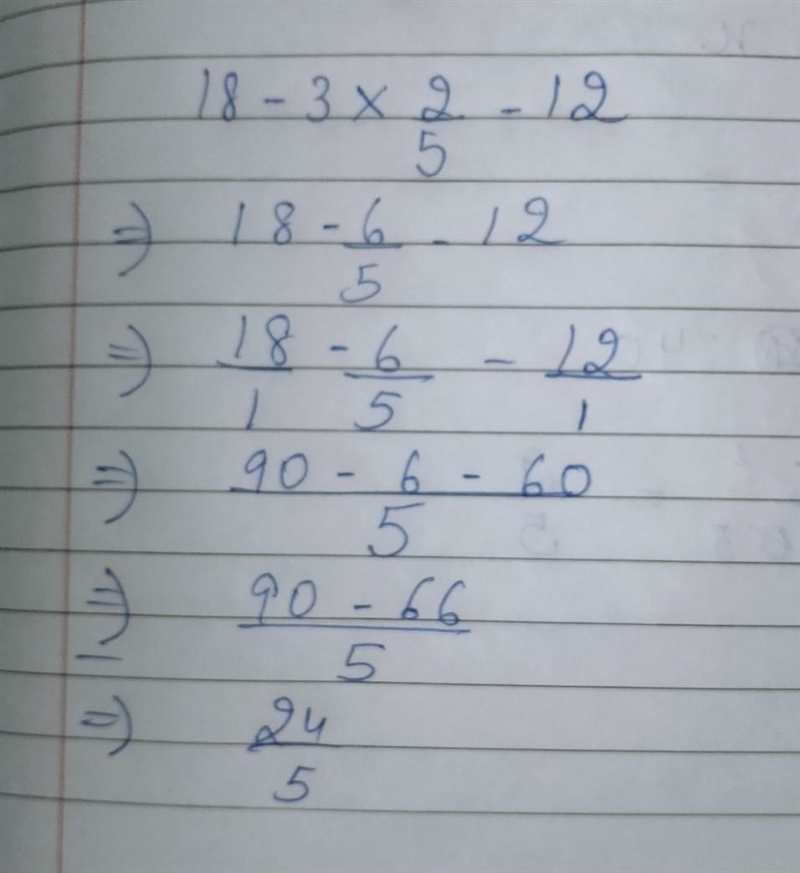 18 - 3 × 2/5 - 12
⇒ 18 - 6/5 - 12
⇒ 18/1 - 6/5 - 12/1
⇒ 90 - 6 - 60/5
⇒ 90 - 66/5
⇒ 24/5